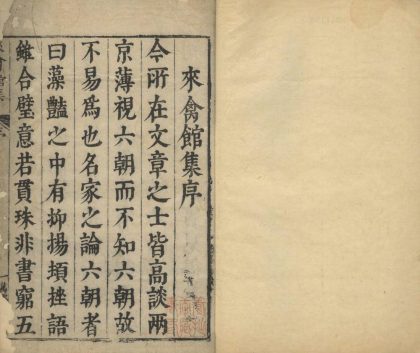 來禽館集序
今所在文章之士皆高談兩
京薄視六朝而不知六朝故
不易爲也名家之論六朝者
曰藻豔之中有抑揚頓挫語
雖合璧意若貫珠非書窮五